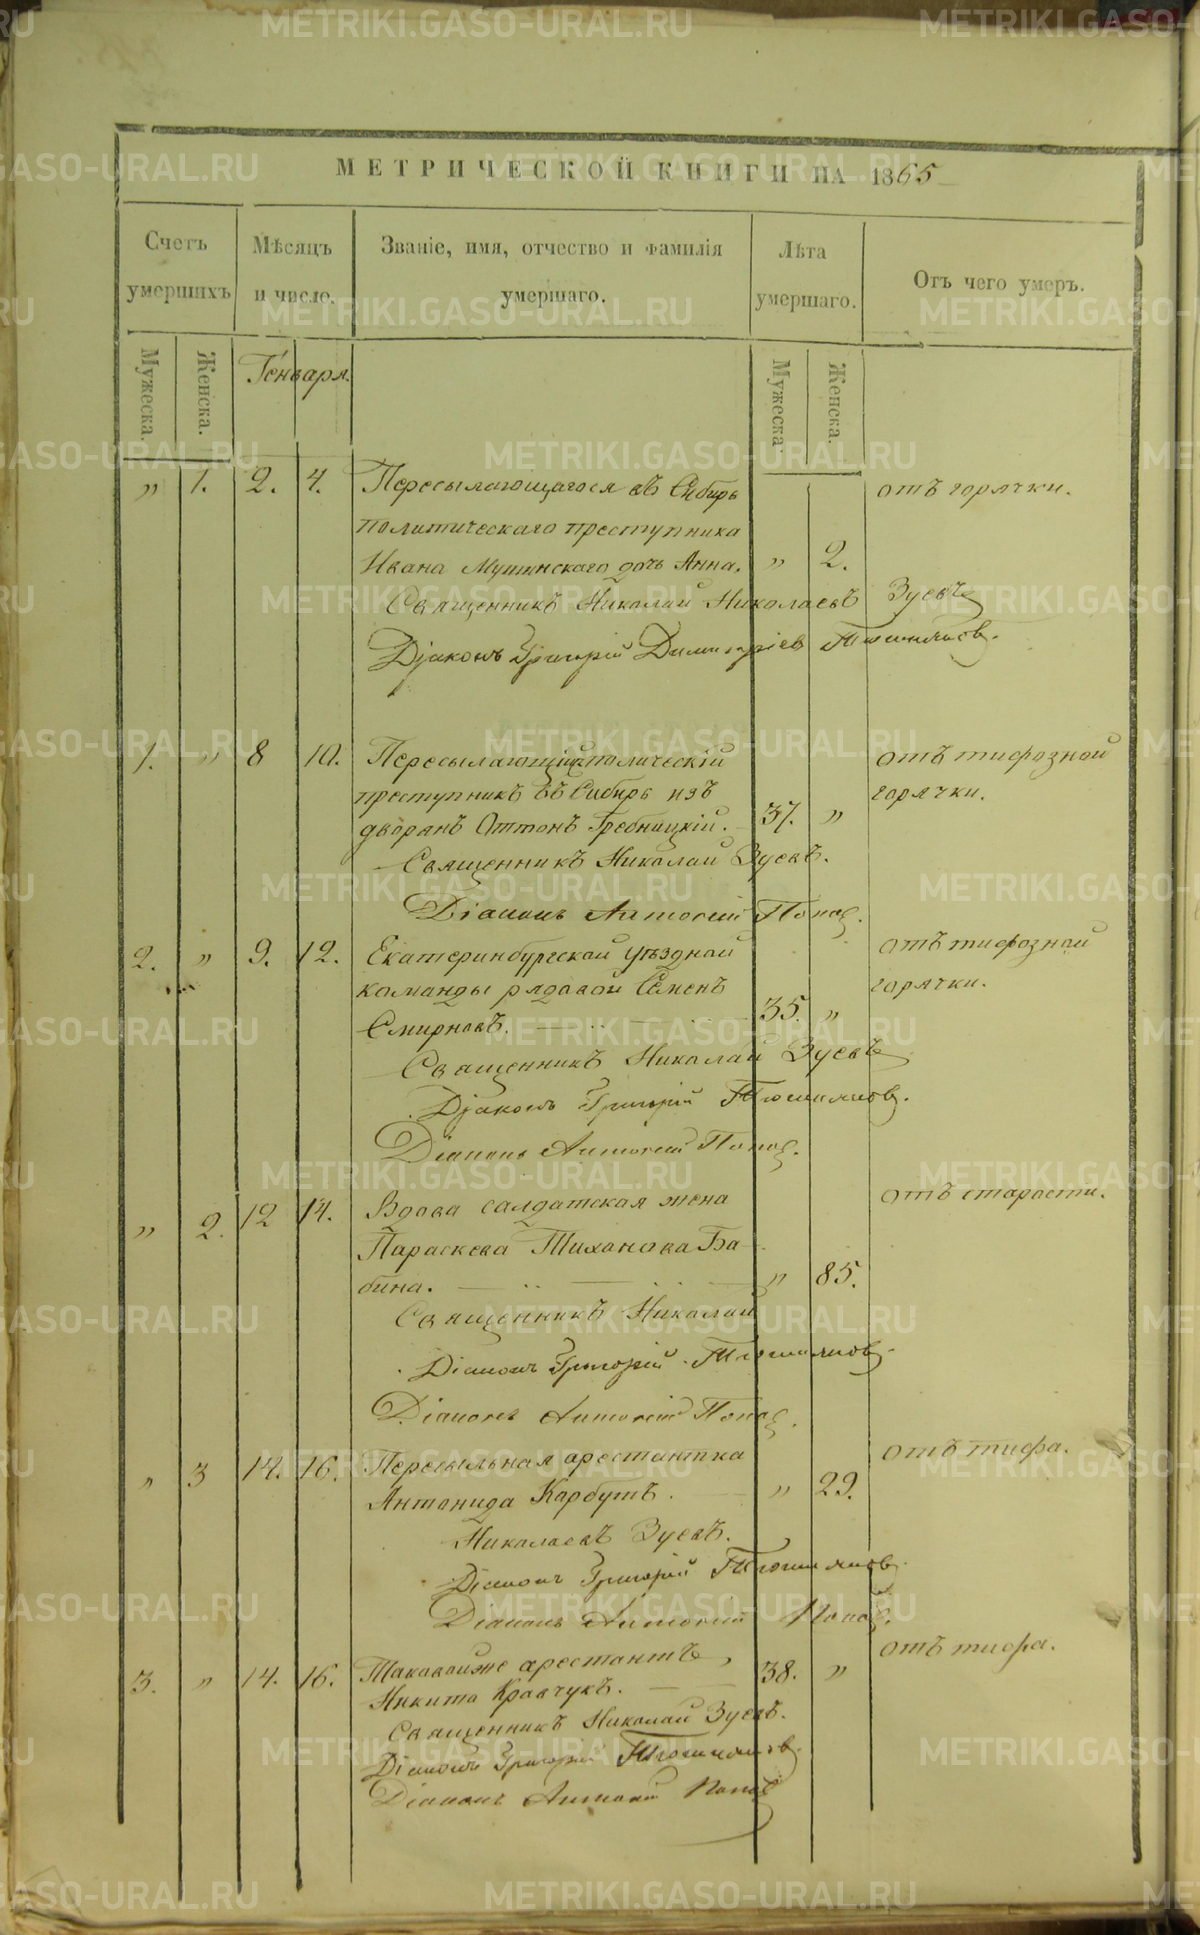 МЕТРИЧЕСКОЙ КНИГИ НА 1865
Счетъ умершихъ
Мѣсяцъ и число.
Званіе, имя, отчество и фамилія умершаго.
Лѣта умершаго.
Отъ чего умеръ.
Мужеска.
Женска.
Генваря.
Мужеска.
Женска.
„ 1. 2. 4. Пересылающагося въ Сибирь отъ горячки.
политическаго преступника
Ивана дочь Анна. „ 2.
Священникъ Николай Николаевъ Зуевъ
Діаконъ Григорій Димитріев
1. „ 8 10. Пересылающійся полическій отъ тифозной
преступникъ въ Сибирь изъ горячки.
дворянъ Оттонъ Гребницкій. 37. „
Священникъ Николай Зуевъ.
Діаконъ Антоній Попов.
2. „ 9. 12. Екатеринбургской уѣздной отъ тифозной
команды рядовой Семенъ горячки.
Смирновъ. 35. „
Священникъ Николай Зуевъ
Діаконъ Григорій
Діаконъ Антоній Попов.
„ 2. 12 14. Вдова салдатская жена отъ старости.
Параскева Тиханова Ба-
бина. „ 85.
Священникъ Николай
Діаконъ Григорій
Діаконъ Антоній Попов.
„ 3 14. 16. Пересыльная арестантка отъ тифа.
Антонида Карбутъ. „ 29.
Николаевъ Зуевъ.
Діаконъ Григорій
Діаконъ Антоній Попов.
3. „ 14. 16. Таковойже арестантъ, 38. „ отъ тифа.
Никита Кравчукъ.
Священникъ Николай Зуевъ.
Діаконъ Григорій
Діаконъ Антоній Попов
METRIKI.GASO-URAL.RU